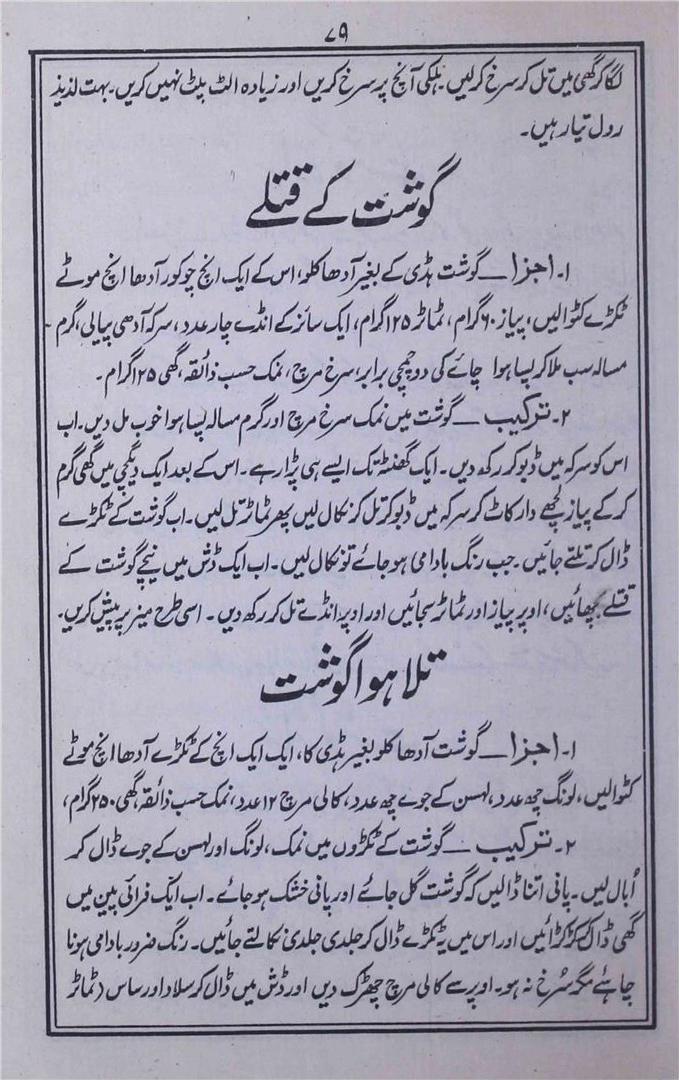 ۷۹
لگا کر گھی میں تل کر سرخ کر لیں۔ ہلکی آنچ پر سرخ کریں اور زیادہ الٹ پلٹ نہیں کریں۔ بہت لذیذ
رول تیار ہیں۔
گوشت کے قتلے
۱۔ اجزا ــ گوشت ہڈی کے بغیر آدھا کلو، اس کے ایک انچ چوکور آدھا انچ موٹے
ٹکڑے کٹوا لیں، پیاز ۶۰ گرام، ٹماٹر ۱۲۵ گرام، ایک سائز کے انڈے چار عدد، سرکہ آدھی پیالی، گرم۔
مسالہ سب ملا کر پسا ہوا چائے کی دو چمچی برابر، سرخ مرچ، نمک حسب ذائقہ، گھی ۱۲۵ گرام۔
۲۔ ترکیب ــ گوشت میں نمک سرخ مرچ اور گرم مسالہ پسا ہوا خوب مل دیں۔ اب
اس کو سرکہ میں ڈبو کر رکھ دیں۔ ایک گھنٹہ تک ایسے ہی پڑا رہے۔ اس کے بعد ایک دیگچی میں گھی گرم
کر کے پیاز لچھے دار کاٹ کر سرکہ میں ڈبو کر تل کر نکال لیں پھر ٹماٹر تل لیں۔ اب گوشت کے ٹکڑے
ڈال کر تلتے جائیں۔ جب رنگ بادامی ہو جائے تو نکال لیں۔ اب ایک ڈش میں نیچے گوشت کے
قتلے بچھائیں، اوپر پیاز اور ٹماٹر سجائیں اور اوپر انڈے تل کر رکھ دیں۔ اسی طرح میز پر پیش کریں۔
تلا ہوا گوشت
۱۔ اجزا ــ گوشت آدھا کلو بغیر ہڈی کا، ایک ایک انچ کے ٹکڑے آدھا انچ موٹے
کٹوا لیں، لونگ چھ عدد، لہسن کے جوے چھ عدد، کالی مرچ ۱۲ عدد، نمک حسب ذائقہ، گھی ۲۵۰ گرام،
۲۔ ترکیب ــ گوشت کے ٹکڑوں میں نمک، لونگ اور لہسن کے جوے ڈال کر
اُبال لیں۔ پانی اتنا ڈالیں کہ گوشت گل جائے اور پانی خشک ہو جائے۔ اب ایک فرائی پین میں
گھی ڈال کر کڑکڑائیں اور اس میں یہ ٹکڑے ڈال کر جلدی جلدی نکالتے جائیں۔ رنگ ضرور بادامی ہونا
چاہئے مگر سُرخ نہ ہو۔ اوپر سے کالی مرچ چھڑک دیں اور ڈش میں ڈال کر سلاد اور ساس (ٹماٹر